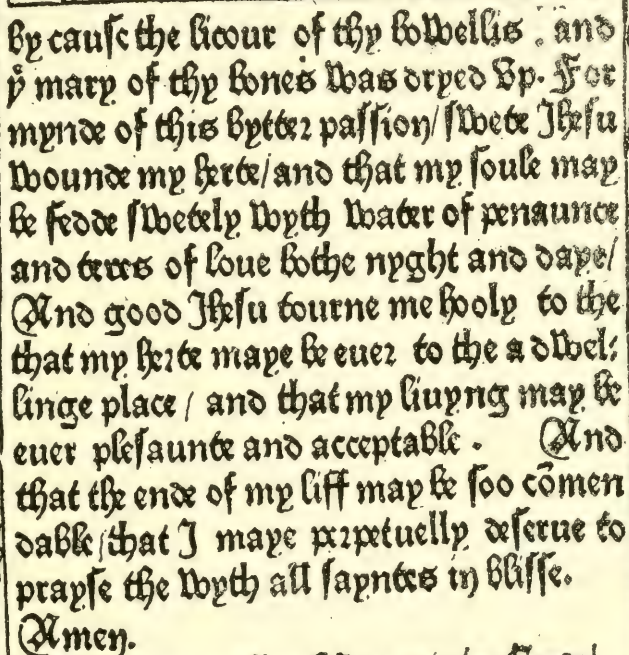 by cause the licour of thy bowellis . and
yͤ mary of thy bones was dryed vp. For
mynde of this bytter passion/ swete Jhesu
wounde my herte/and that my soule may
be fedde swetely wyth water of penaunce
and teres of loue bothe nyght and daye/
And good Jhesu tourne me hooly to the
that my herte maye be euer to the a dwel⸗
linge place / and that my liuyng may be
euer plesaunte and acceptable . And
that the ende of my liff may be soo cōmen
dable/that I maye perpetuelly deserue to
prayse the wyth all sayntes in blisse.
Amen.